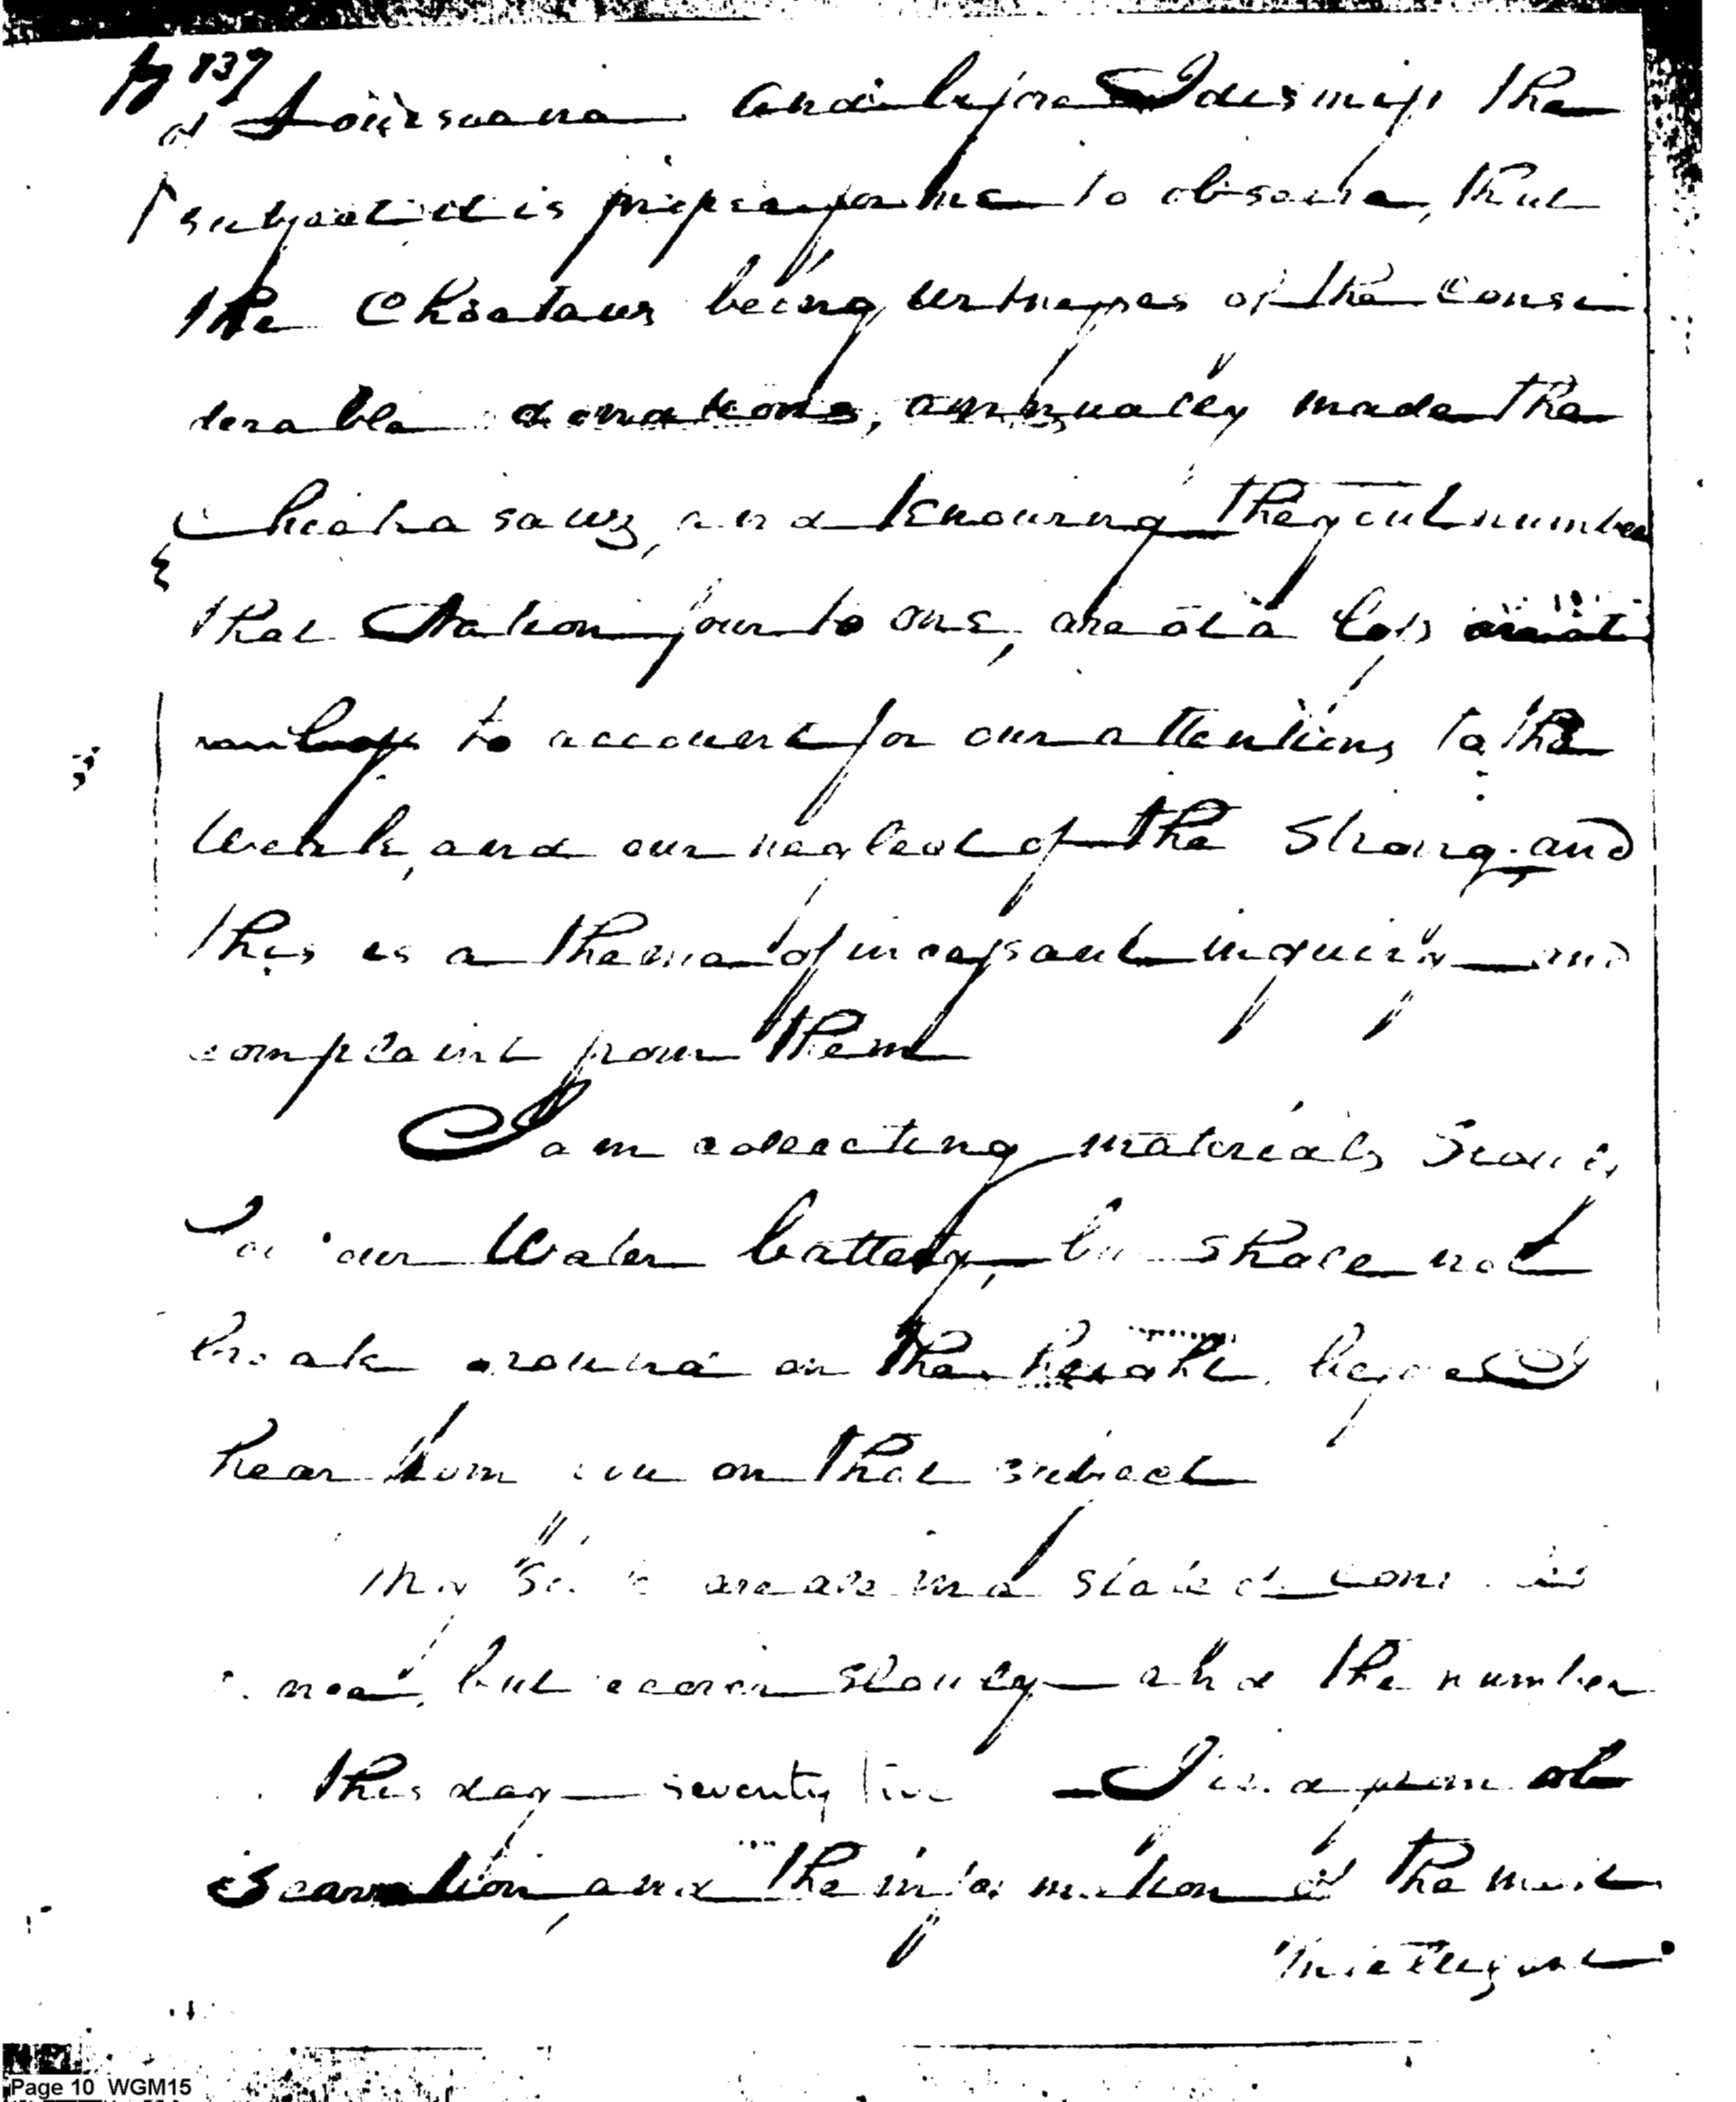 137
of Louisiana and before I dismiss the
subject it is proper for me to observe, that
the Choctaws being witnesses of the consi
derable donations, annually made the
Chickasaws, and knowing they out number
that Nation four to one, are at a loss
to account for our attentions to the
weak, and our neglect of the Strong, and
this is a theme of incessant inquiry and
complaint from them
I am collecting materials
for our Water battery, but shall not
break ground on the height, before I
hear from you on that subject
My are all in a state of
but slowly and the number
this day seventy five I find from ob
servation, and the information of the most
intelligent
Page 10 WGM15